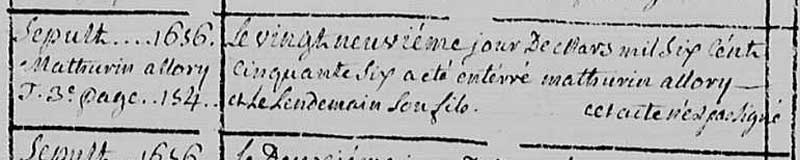 Sepult....1656.
Mathurin allory
T. 3e page..154..
Le vingt neuviéme jour De Mars mil Six Cént
Cinquante Six a été entérré mathurin allory
et Le Lendemain Son fils. cet acte n'est pas signé
Sepult 1656
Le Deuxiéme